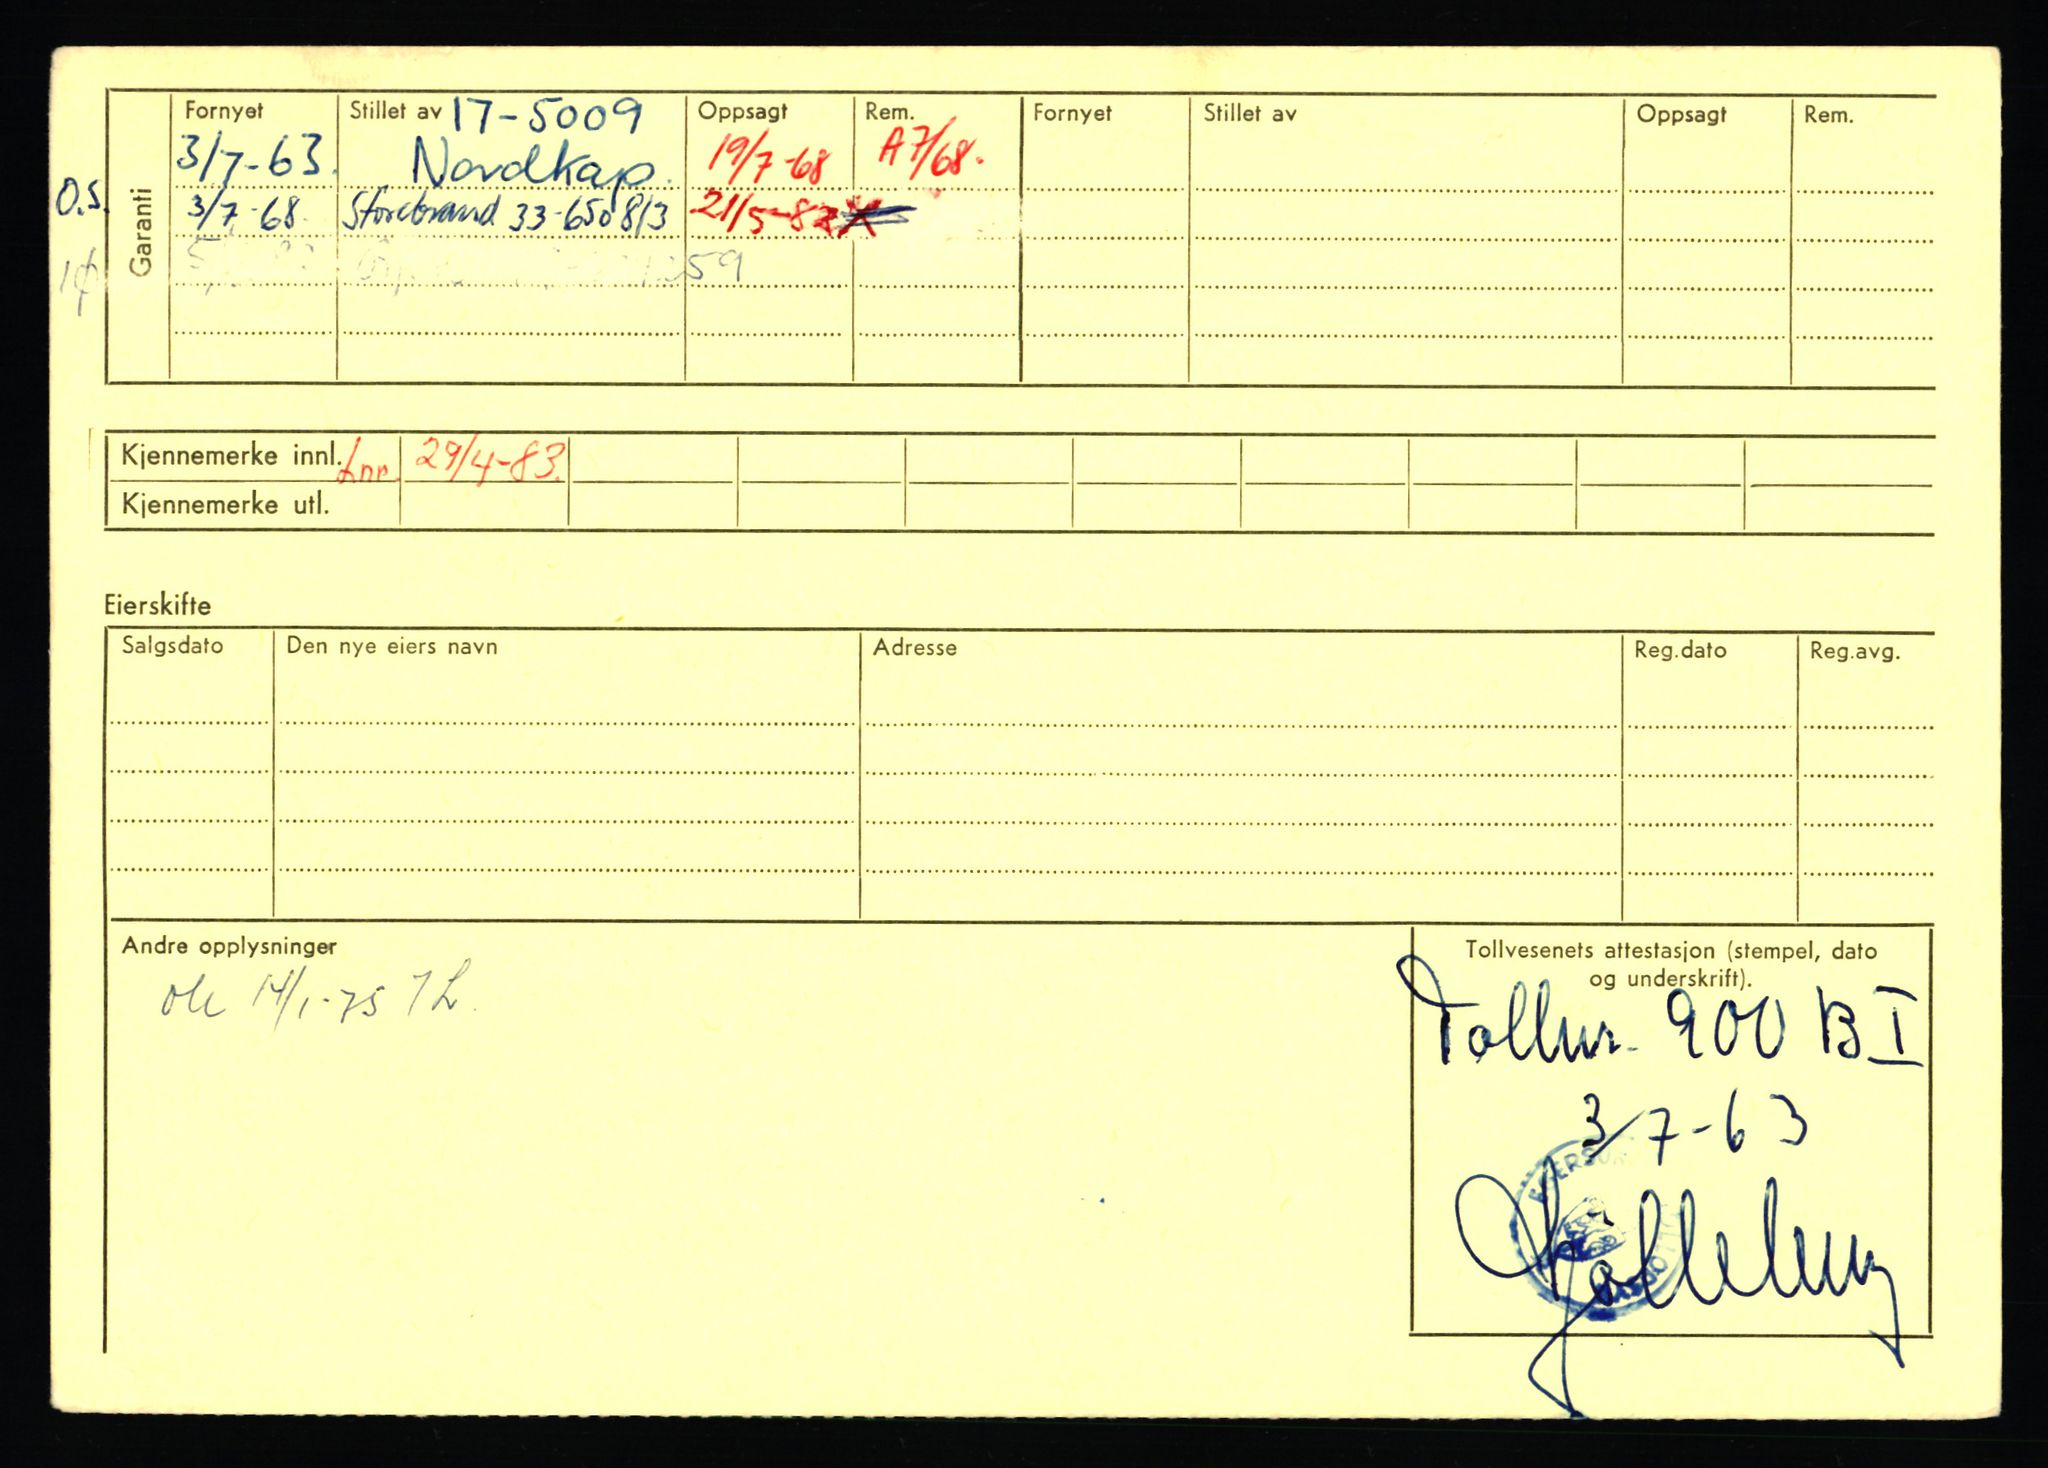 Fornyet Stillet av 17-5009 Oppsagt Rem. Fornyet Stillet av Oppsagt Rem.
3/7-63. Nordkap. 19/7-68 A7/68.
O.S. 3/7-68 Storebrand 33-650813 21/5-82
59
Garanti
Kjennemerke innl. Lnr. 29/4-83.
Kjennemerke utl.
Eierskifte
Salgsdato Den nye eiers navn Adresse Reg.dato Reg.avg.
Andre opplysninger
14/1-75
Tollvesenets attestasjon (stempel, dato
og underskrift).
Tollnr. 900 B I
3/7-63